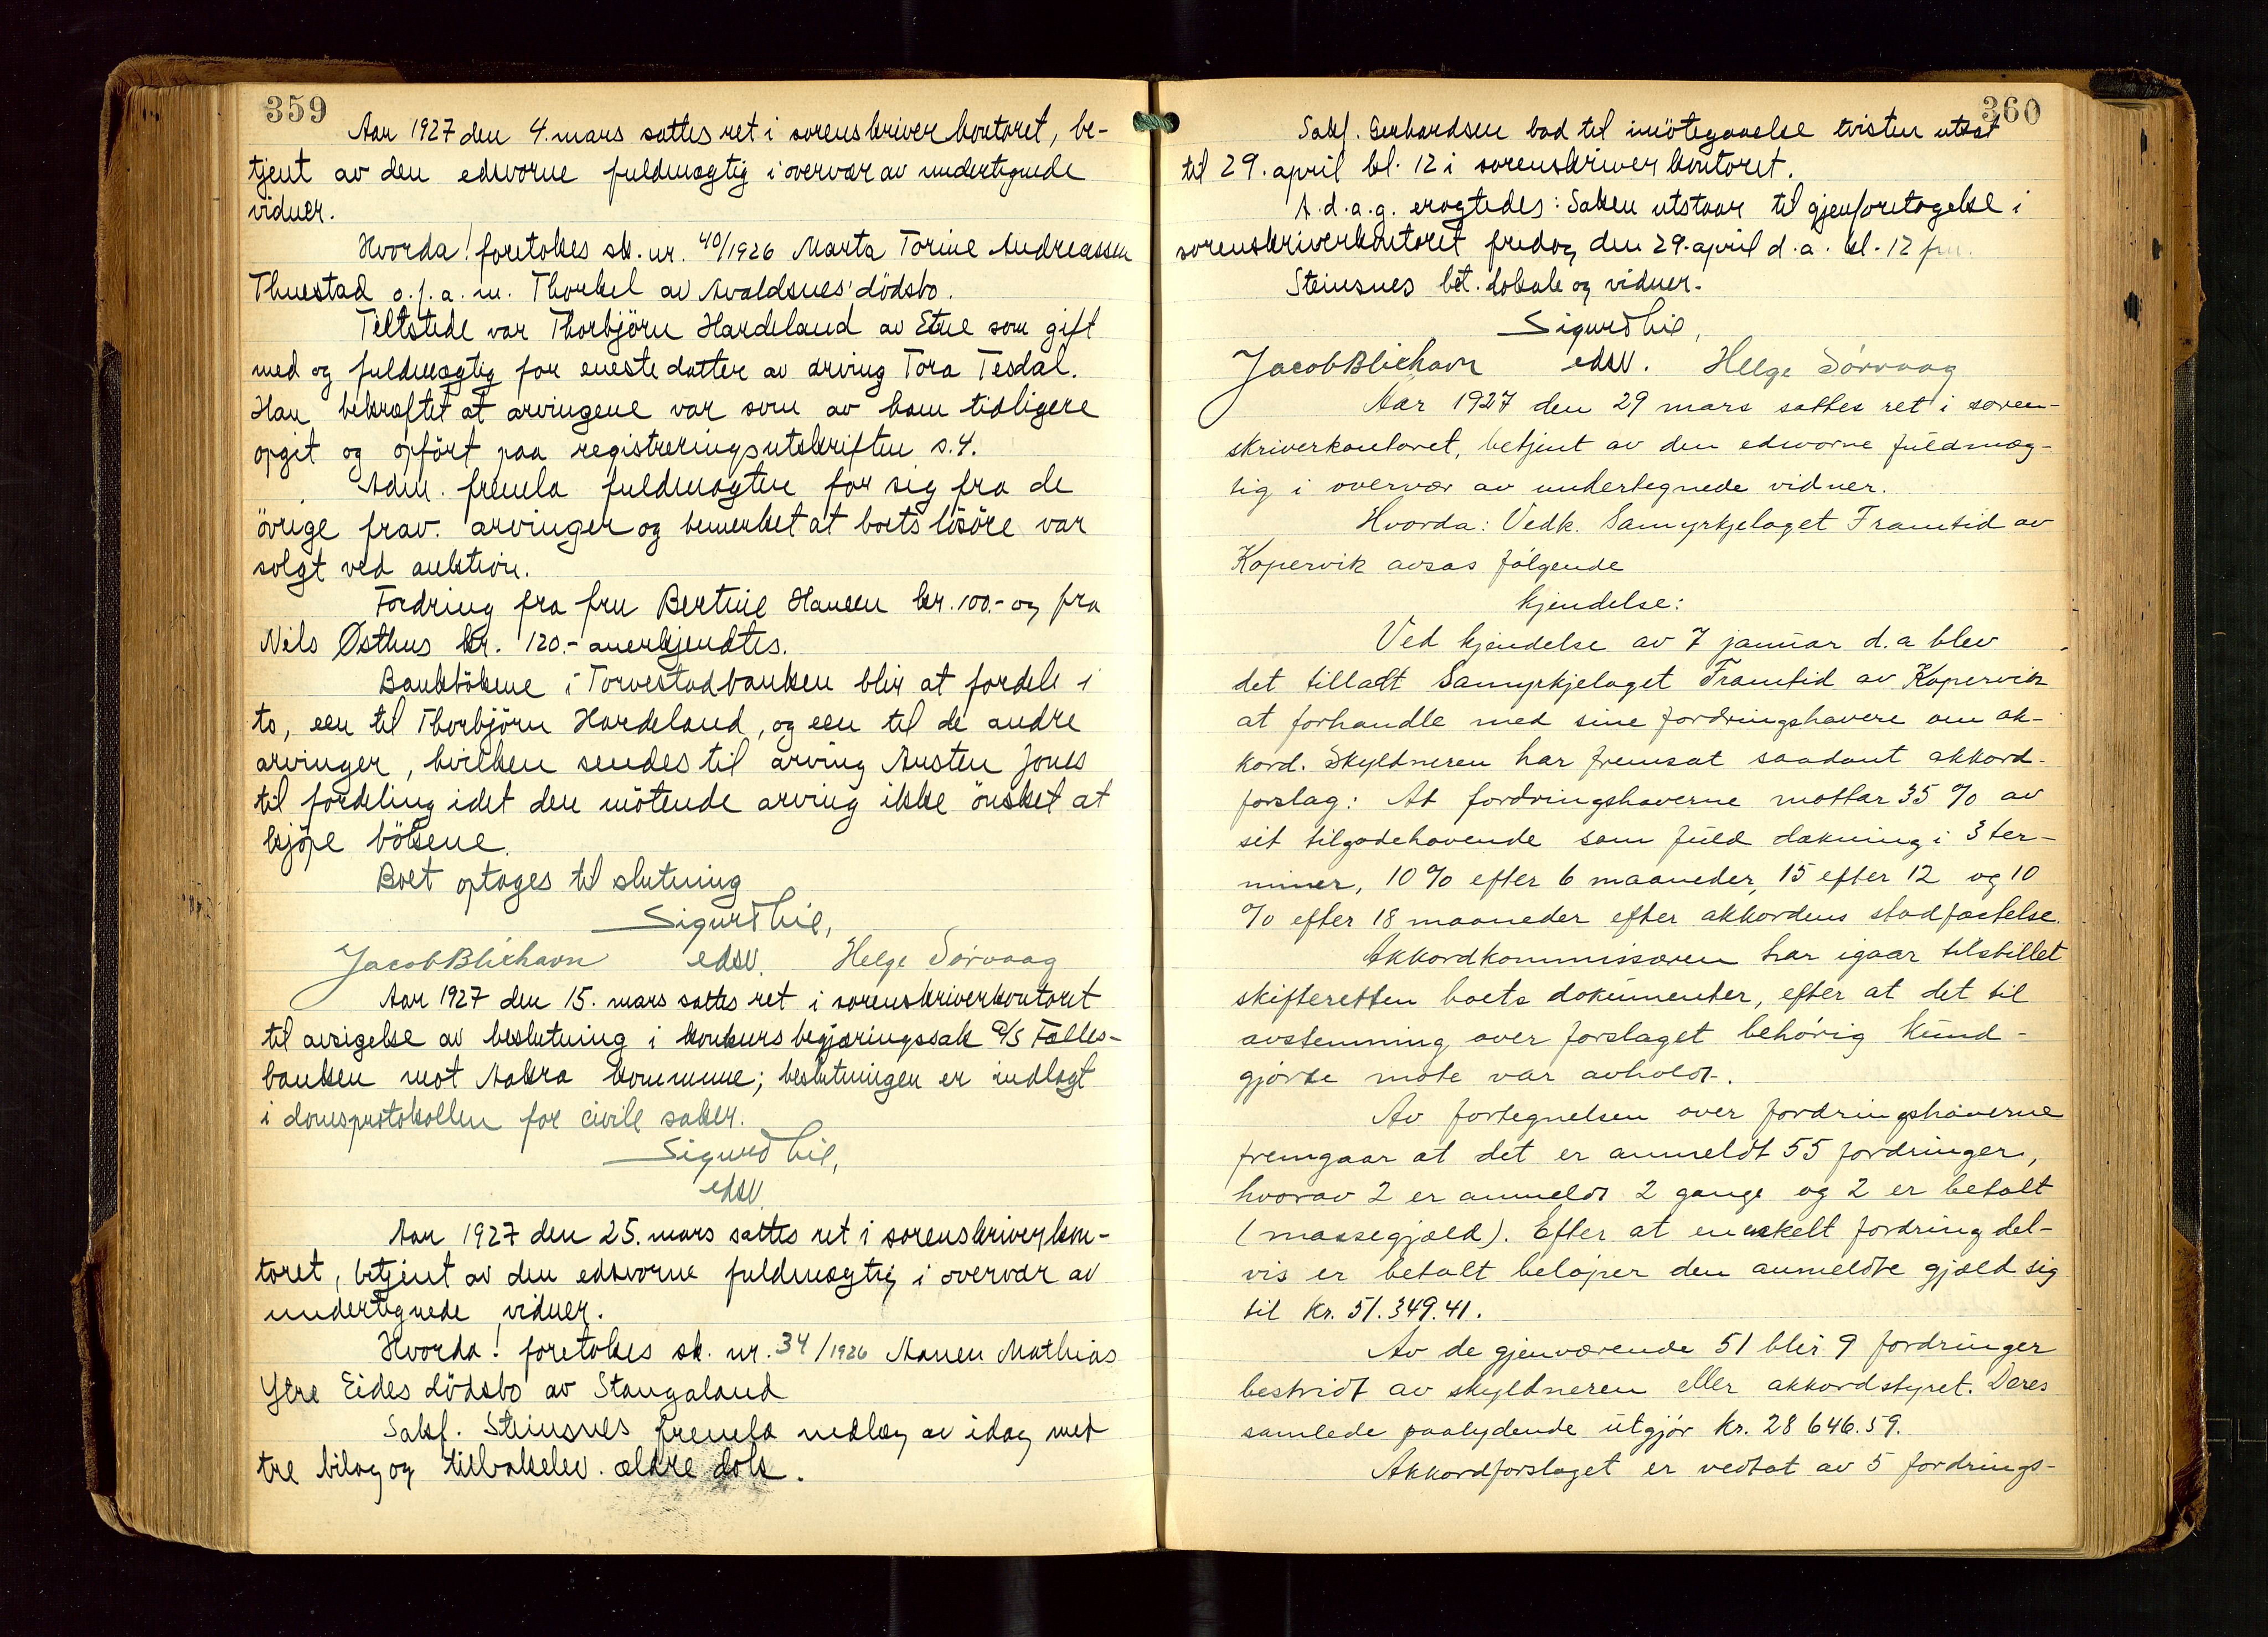 359
Aar 1927 den 4. mars sattes ret i sorenskriverkontoret, be-
tjent av den edsvorne fuldmægtig i overvær av undertegnede
vidner.
Hvorda! foretokes sk. nr. 40/1926 Marta Torine Andreassen
Thuestad o.f.a.m. Thorkel av Avaldsnes' dödsbo.
Tiltstede var Thorbjörn Hardeland av Etne som gift
med og fuldmægtig for eneste datter av arving Tora Tesdal.
Han bekræftet at arvingene var som av ham tidligere
opgit og opført paa registreringsutskriften s. 4.
Adm. fremla fuldmagter for sig fra de
övrige frav. arvinger og bemerket at boets lösöre var
solgt ved auktion.
Fordring fra fru Bertine Hansen kr. 100.- og fra
Nils Østhus kr. 120.- anerkjendtes.
Bankbökene i Torvestadbanken blir at fordele i
to, een til Thorbjörn Hardeland, og een til de andre
arvinger, hvilken sendes til arving Austen Jones
til fordeling idet den mötende arving ikke önsket at
kjöpe bökene.
Boet optages til slutning
Sigurd Lie,
Jacob Blikhavn edsv. Helge Sørvaag
Aar 1927 den 15. mars sattes ret i sorenskriverkontoret
til avsigelse av beslutning i konkursbegjæringssak A/S Fælles-
banken mot Aakra kommune; beslutningen er indlagt
i domsprotokollen for civile saker.
Sigurd Lie,
edsv.
Aar 1927 den 25. mars sattes ret i sorenskriverkon-
toret, betjent av den edsvorne fuldmægtig i overvær av
undertegnede vidner.
Hvorda! foretokes sk. nr. 34/1926 Aanen Mathias
Ytre Eides dödsbo av Stangaland
Sakf. Steinsnes fremla indlæg av idag med
tre bilag og tilbakelev. ældre dok.
360
Sakf. Gerhardsen bad til imötegaaelse tvisten utsat
til 29. april kl. 12 i sorenskriverkontoret.
A.d.a.g. eragtedes: Saken utstaar til gjenforetagelse i
sorenskriverkontoret fredag den 29. april d.a. kl. 12 fm.
Steinsnes bet. lokale og vidner.
Sigurd Lie,
Jacob Blikhavn edsv. Helge Sørvaag
Aar 1927 den 29 mars sattes ret i soren-
skriverkontoret, betjent av den edsvorne fuldmæg-
tig i overvær av undertegnede vidner.
Hvorda: Vedk. Samyrkjelaget Framtid av
Kopervik avsas følgende
kjendelse:
Ved kjendelse av 7 januar d.a blev
det tilladt Samyrkjelaget Framtid av Kopervik
at forhandle med sine fordringshavere om ak-
kord. Skyldneren har fremsat saadant akkord-
forslag: At fordringshaverne mottar 35 % av
sit tilgodehavende som fuld dækning i 3 ter-
miner, 10 % efter 6 maaneder, 15 efter 12 og 10
% efter 18 maaneder efter akkordens stadfæstelse.
Akkordkommissæren har igaar tilstillet
skifteretten boets dokumenter, efter at det til
avstemning over forslaget behørig kund-
gjorte møte var avholdt.
Av fortegnelsen over fordringshaverne
fremgaar at det er anmeldt 55 fordringer,
hvorav 2 er anmeldt 2 gange og 2 er betalt
(massegjæld). Efter at en enkelt fordring del-
vis er betalt beløper den anmeldte gjæld sig
til kr. 51.349.41.
Av de gjenværende 51 blir 9 fordringer
bestridt av skyldneren eller akkordstyret. Deres
samlede paalydende utgjør kr. 28 646.59.
Akkordforslaget er vedtat av 5 fordrings-